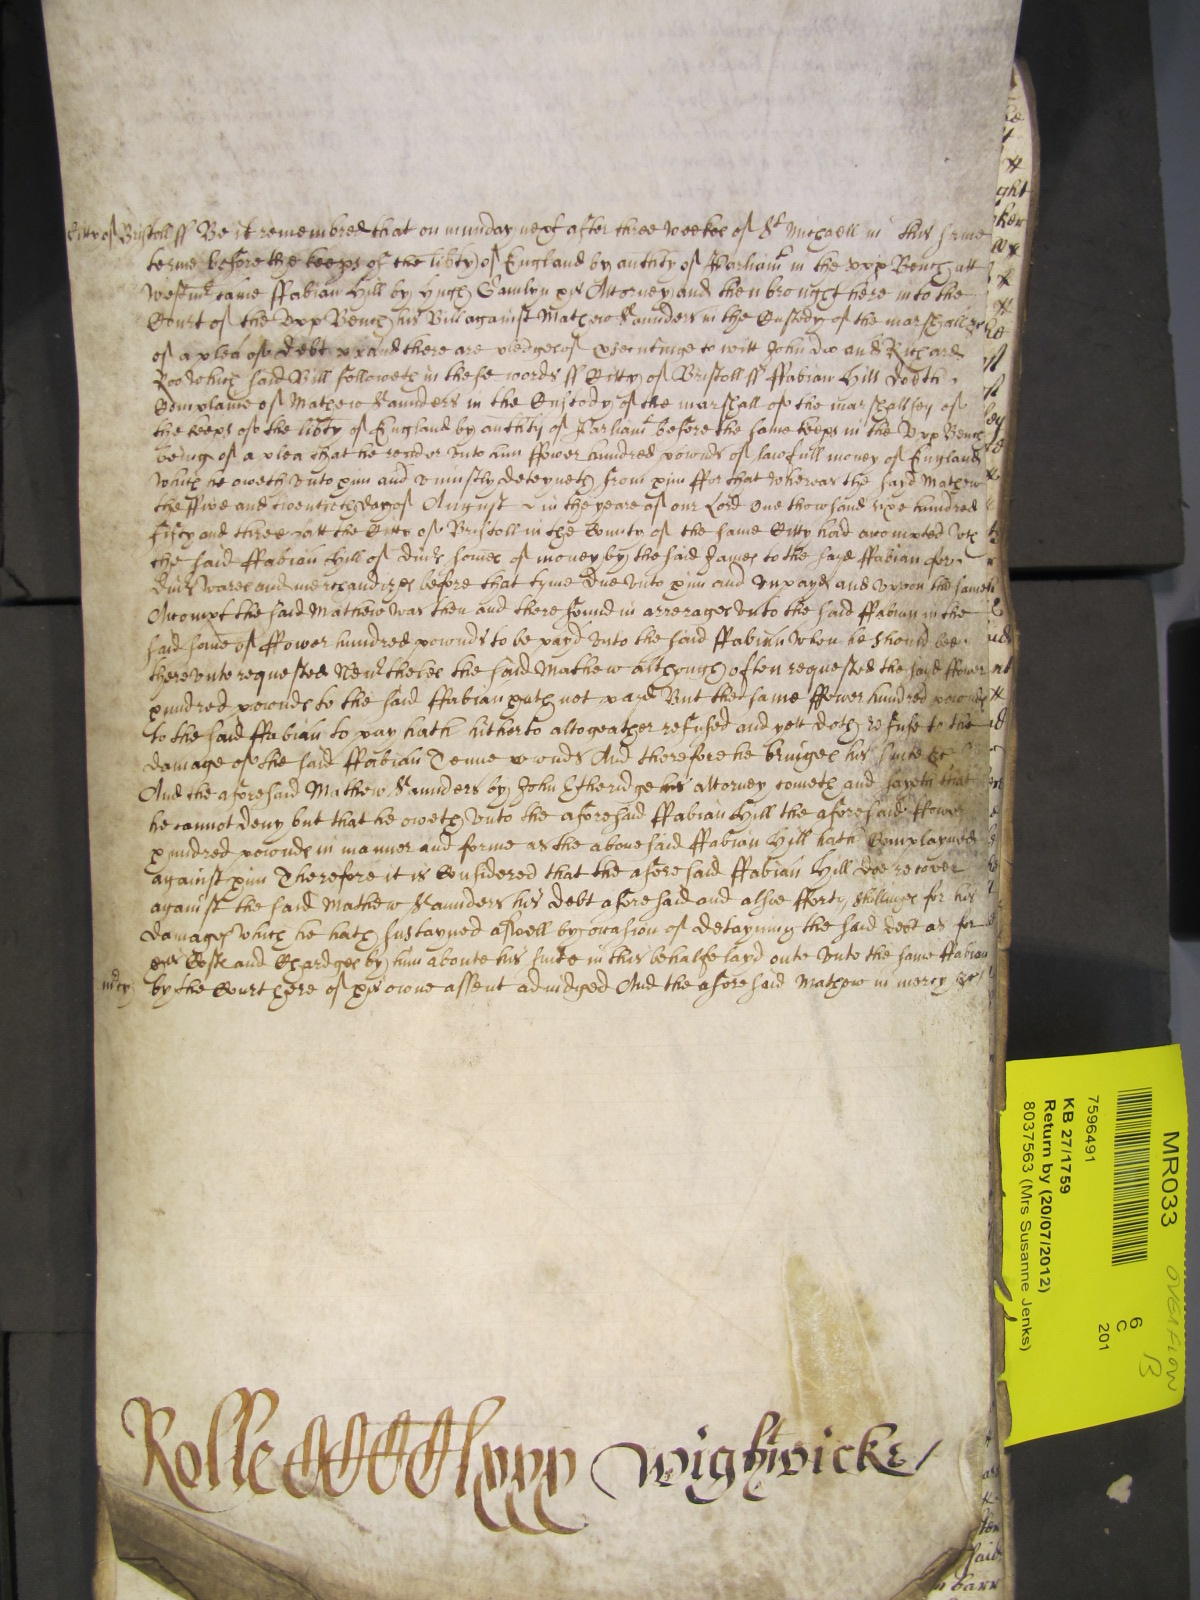 Citty of Bristoll ss Be it remembred that on munday next after three weekes of St Michaell in this same
terme before the keeps of the libty of England by authity of Parliamt in the vpp Bench att
Westmr came ffabian Hill by Hugh Hamlyn his Attorney and then brought here into the
Court of the vpp Bench his Bill against Mathew Saunders in the Custody of the marshall &c
of a plea of debt and there are pledges of prosecutinge to witt John Doo and Richard
Roo which said Bill followeth in these words ss Citty of Bristoll ss ffabian Hill doeth
Complaine of Mathew Saunders in the Custody of the marshall of the marshallsey of
the keeps of the libty of England by authity of Parliamt before the same keeps in the Vpp Bench
being of a plea that he render vnto him ffower hundred pownds of lawfull money of England
which he oweth vnto him and vniustly deteyneth from him ffor that whereas the said Mathew
the ffive and twentieth day of August in the yeare of our Lord One thowsand sixe hundred
fifty and three att the Citty of Bristoll in the County of the same Citty had accompted wth
the said ffabian Hill of divrs somes of money by the said James to the said ffabian for
divrs wares and merchandizes before that tyme due vnto him and vnpayd and vppon the same
Accompt the said Mathew was then and there found in arrerages vnto the said ffabian in the
said some of ffower hundred pownds to be payd vnto the said ffabian when he should bee
therevnto requested Nevrtheles the said Mathew although often requested the said ffower
hundred pownds to the said ffabian hath not payd But the same ffower hundred pownds
to the said ffabian to pay hath hitherto altogeather refused and yett doth refuse to the
damage of the said ffabian Tenne pownds And therefore he bringes his suite &c
And the aforesaid Mathew Saunders by John Etheridge his attorney cometh and sayeth that
he cannot deny but that he oweth vnto the aforesaid ffabian Hill the aforesaid ffower
hundred pownds in manner and forme as the abovesaid ffabian Hill hath Complayned
against him Therefore it is Considered that the aforesaid ffabian Hill doe recover
against the said Mathew Saunders his debt aforesaid and alsoe fforty shillinges for his
damages which he hath sustayned aswell by occasion of detayning the said debt as for
Costs and Chardges by him aboute his suite in this behalfe layd oute vnto the same ffabian
mcy by the Court here of his owne assent adiudged And the aforesaid Mathew in mercy &c
Rolle Wightwicke
MR033
OVERFLOW
B
6
C
201
7596491
KB 27/1759
Return by (20/07/2012)
8037563 (Mrs Susanne Jenks)